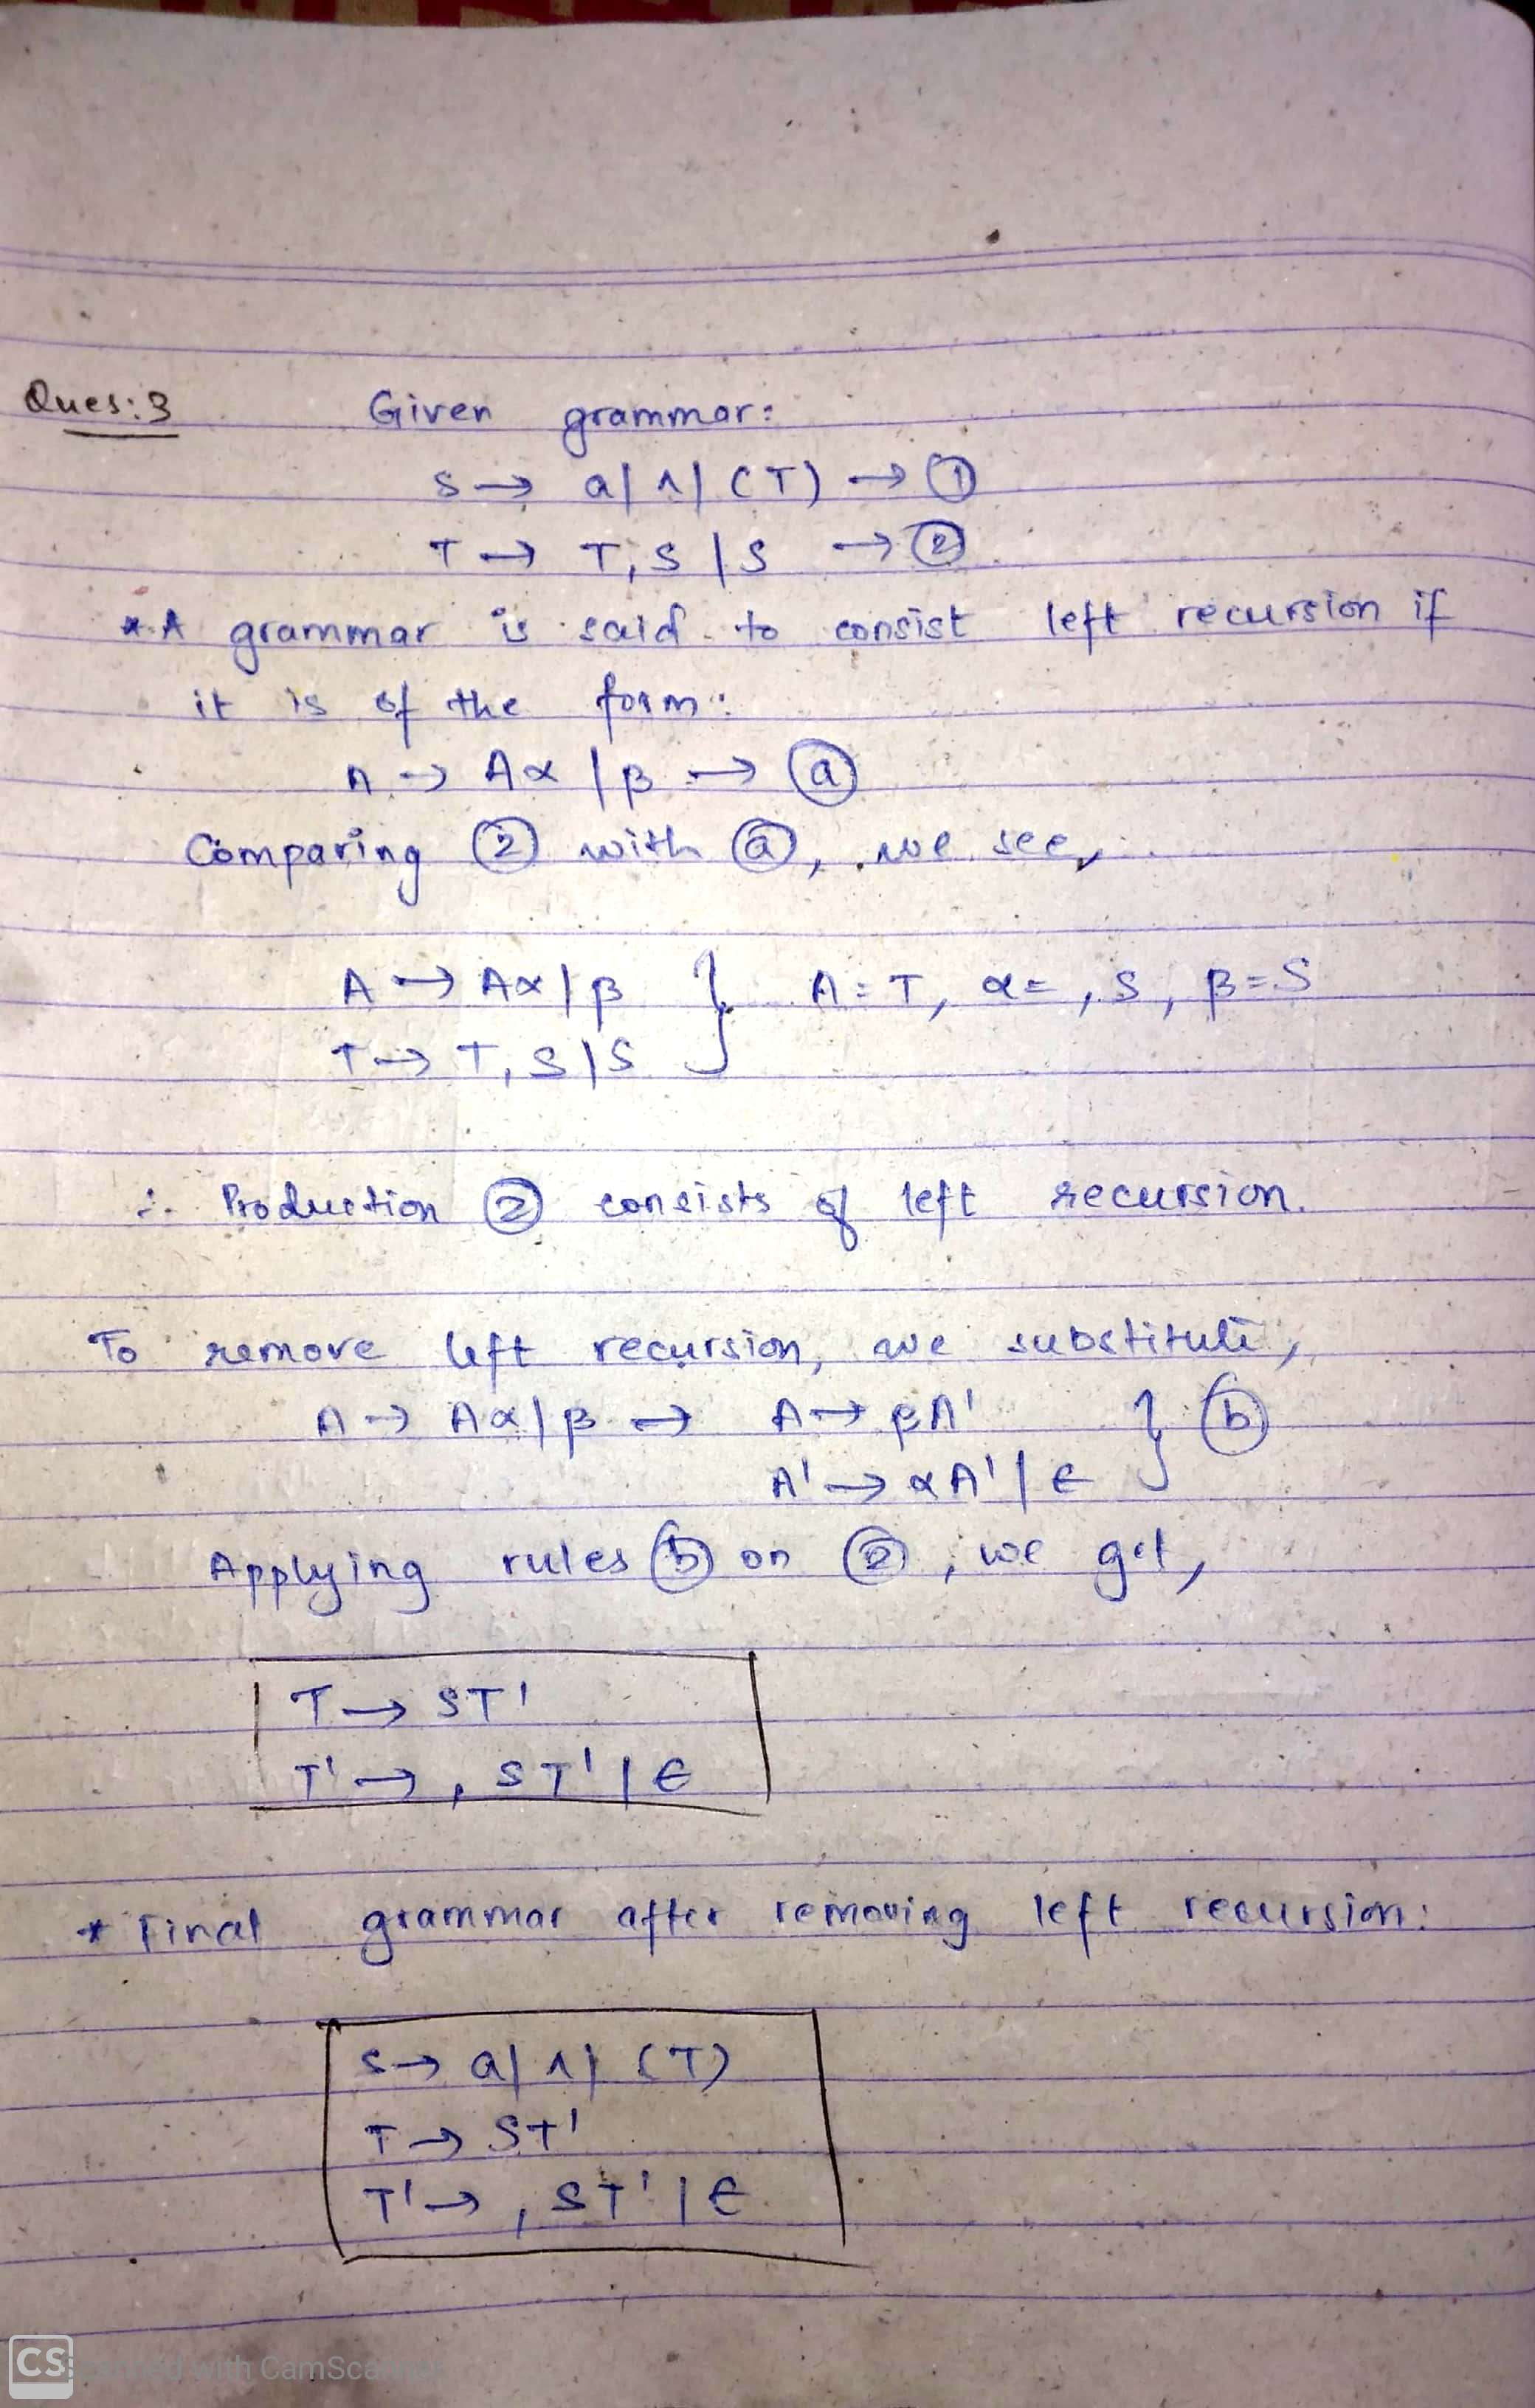 Ques:3 Given grammar:
S → a | ∧ | (T) → ①
T → T, S | S → ②
* A grammar is said to consist left recursion if
it is of the form:
A → Aα | β → ⓐ
Comparing ② with ⓐ, we see,
A → Aα | β } A = T, α = ,S, β = S
T → T, S | S
∴ Production ② consists of left recursion.
To remove left recursion, we substitute,
A → Aα | β → A → βA' } ⓑ
A' → αA' | ∈
Applying rules ⓑ on ②, we get,
T → ST'
T' → , ST' | ∈
* Final grammar after removing left recursion:
S → a | ∧ | (T)
T → ST'
T' → , ST' | ∈
CS Scanned with CamScanner